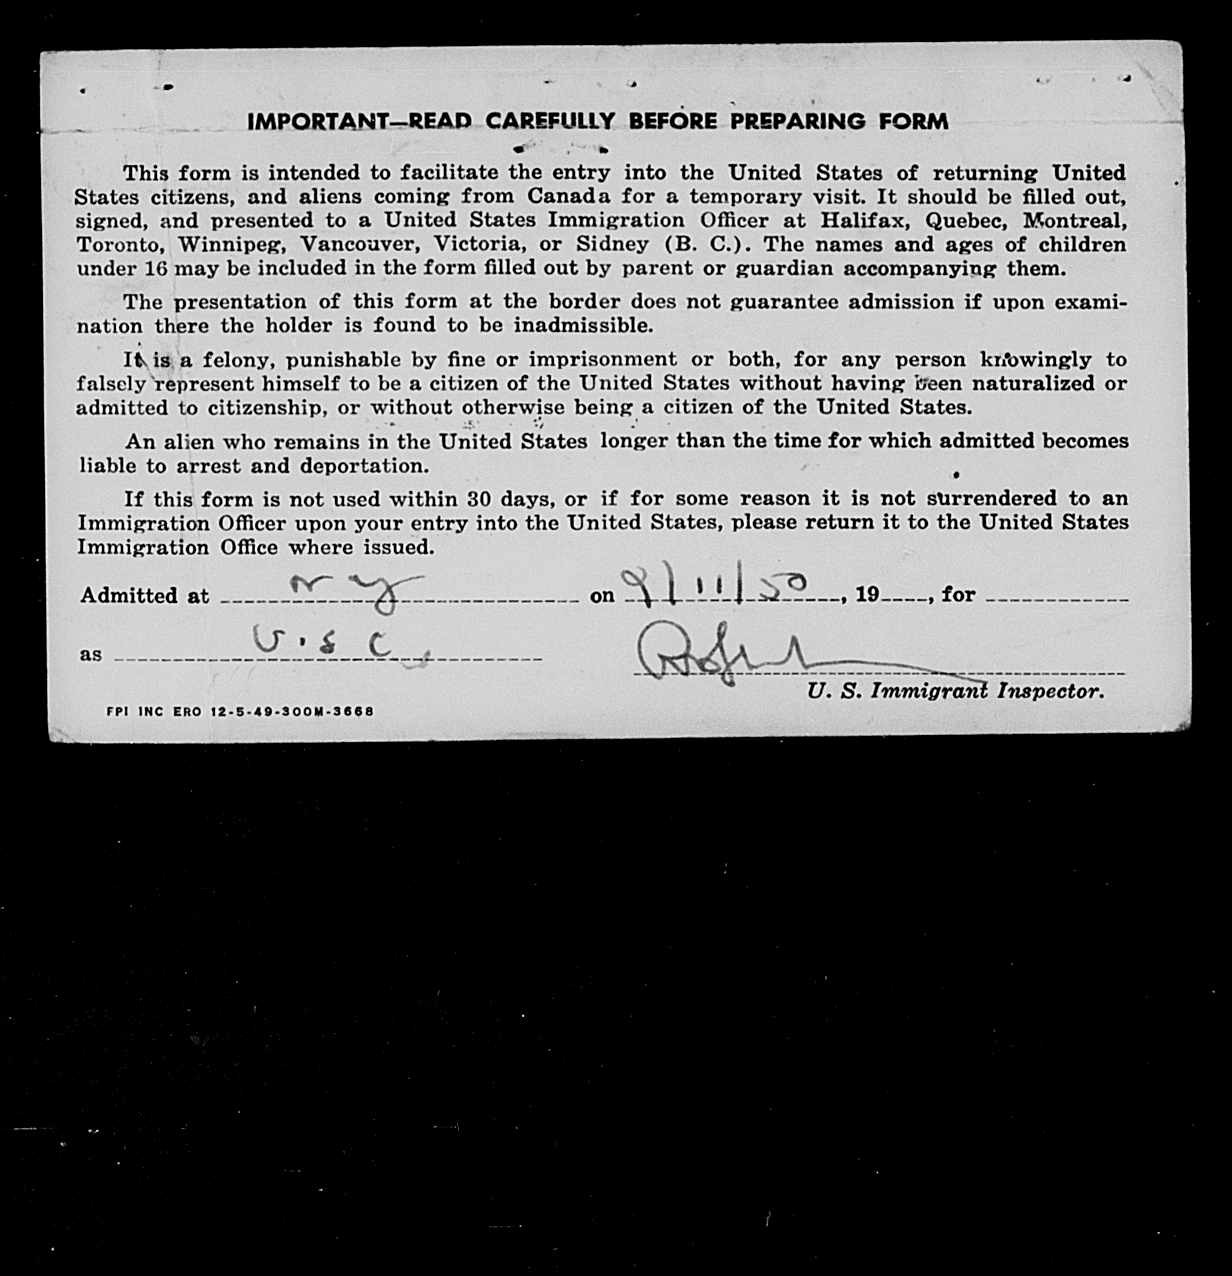 IMPORTANT—READ CAREFULLY BEFORE PREPARING FORM
This form is intended to facilitate the entry into the United States of returning United
States citizens, and aliens coming from Canada for a temporary visit. It should be filled out,
signed, and presented to a United States Immigration Officer at Halifax, Quebec, Montreal,
Toronto, Winnipeg, Vancouver, Victoria, or Sidney (B. C.). The names and ages of children
under 16 may be included in the form filled out by parent or guardian accompanying them.
The presentation of this form at the border does not guarantee admission if upon exami-
nation there the holder is found to be inadmissible.
It is a felony, punishable by fine or imprisonment or both, for any person knowingly to
falsely represent himself to be a citizen of the United States without having been naturalized or
admitted to citizenship, or without otherwise being a citizen of the United States.
An alien who remains in the United States longer than the time for which admitted becomes
liable to arrest and deportation.
If this form is not used within 30 days, or if for some reason it is not surrendered to an
Immigration Officer upon your entry into the United States, please return it to the United States
Immigration Office where issued.
Admitted at NY on 9/11/50, 19, for
as U.S.C.
U. S. Immigrant Inspector.
FPI INC ERO 12-5-49-300M-3668